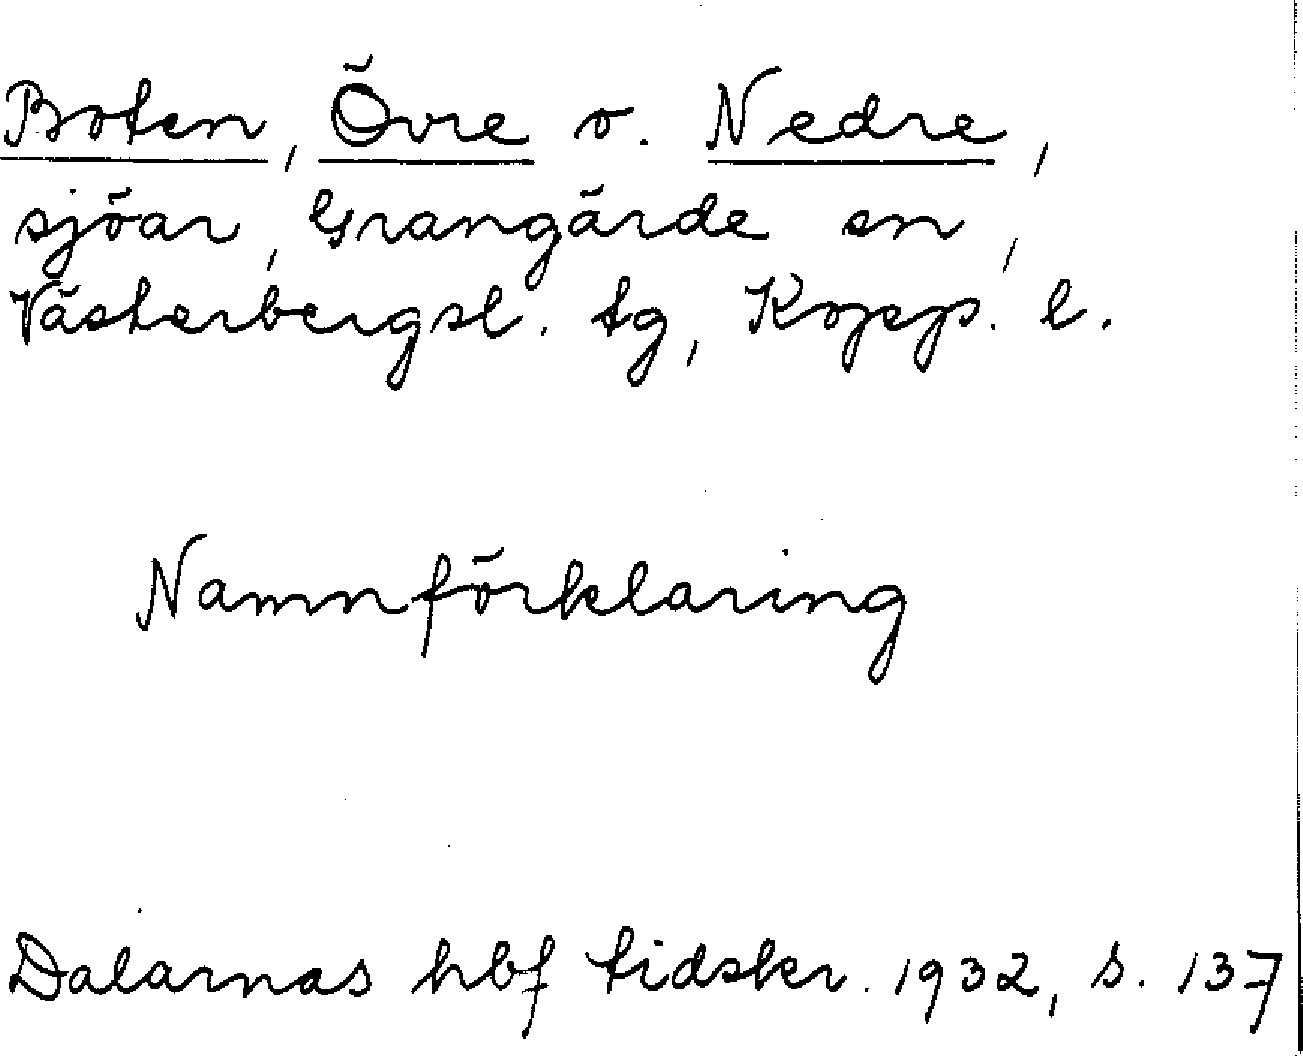 Boten, Övre o. Nedre,
sjöar, Grangärde sn,
Västerbergsl. tg, Kopp. l.
Namnförklaring
Dalarnas hbf tidskr. 1932, s. 137